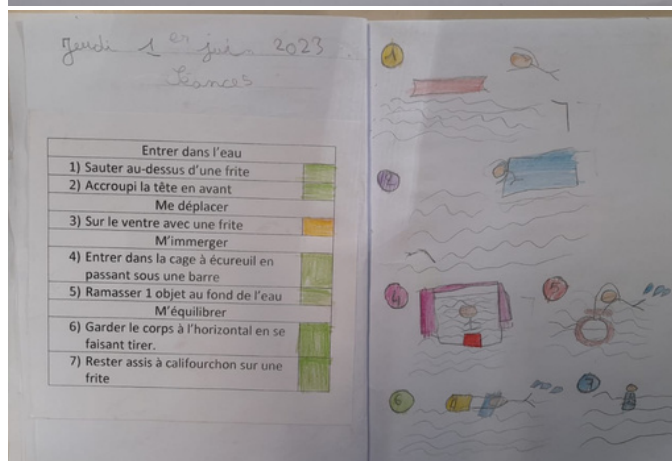 Jeudi 1er juin 2023
Séances
Entrer dans l'eau
1) Sauter au-dessus d'une frite
2) Accroupi la tête en avant
Me déplacer
3) Sur le ventre avec une frite
M'immerger
4) Entrer dans la cage à écureuil en
passant sous une barre
5) Ramasser 1 objet au fond de l'eau
M'équilibrer
6) Garder le corps à l'horizontal en se
faisant tirer.
7) Rester assis à califourchon sur une
frite
1
2
4
5
6
7